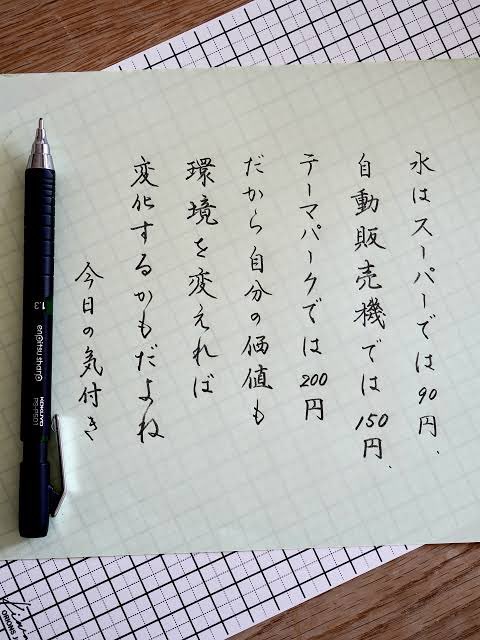 水はスーパーでは90円、
自動販売機では150円、
テーマパークでは200円
だから自分の価値も
環境を変えれば
変化するかもだよね
今日の気付き
1.3
enpitsu sharp
KOKUYO
PS-P501